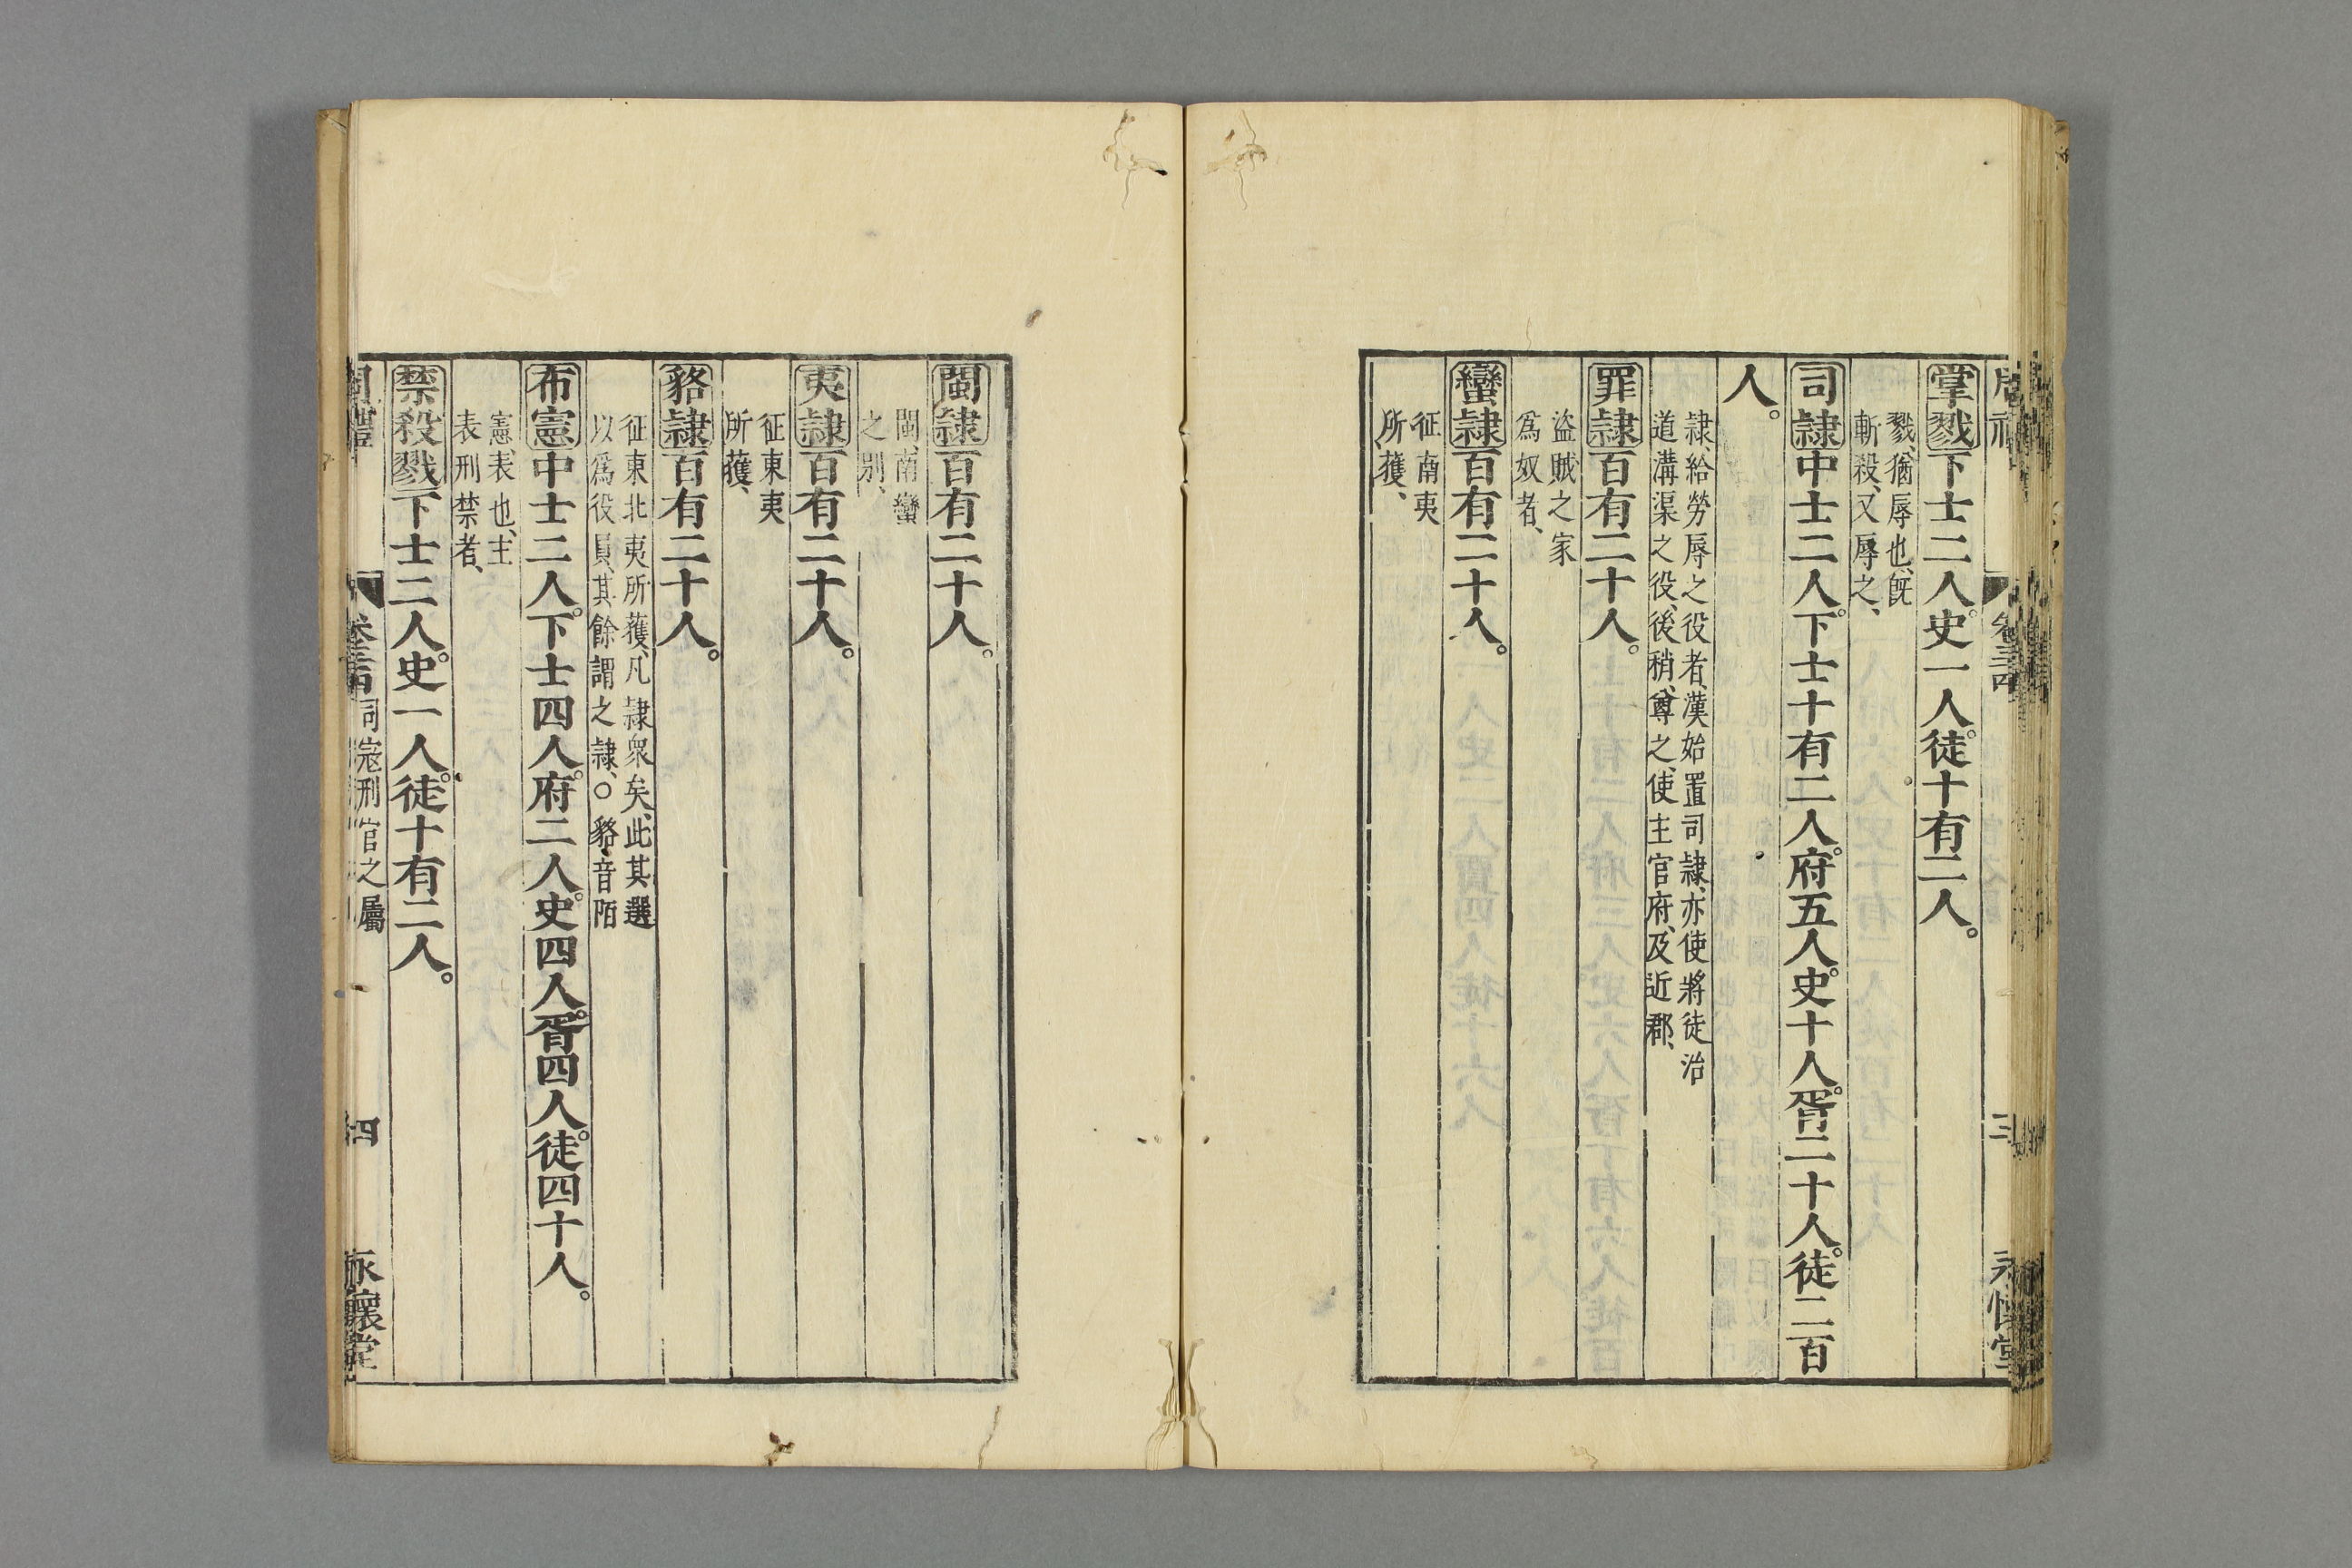 掌戮下士二人。史一人。徒十有二人。
戮、猶辱也、旣
斬殺、又辱之、
司隷中士二人。下士十有二人。府五人。史十人。胥二十人。徒二百
人。
隷、給勞辱之役者、漢始置司隷、亦使將徒治
道溝渠之役、後稍尊之、使主官府、及近郡、
罪隷百有二十人。
盜賊之家
爲奴者、
蠻隷百有二十人。
征南夷
所獲、
閩隷百有二十人。
閩、南蠻
之別、
夷隷百有二十人。
征東夷
所獲、
貉隷百有二十人。
征東北夷所獲、凡隷衆矣、此其選
以爲役員、其餘謂之隷、○貉、音陌
布憲中士二人。下士四人。府二人。史四人。胥四人。徒四十人。
憲、表也、主
表刑禁者、
禁殺戮下士二人。史一人。徒十有二人。
卷三四
司寇刑官之屬
四
永懷堂